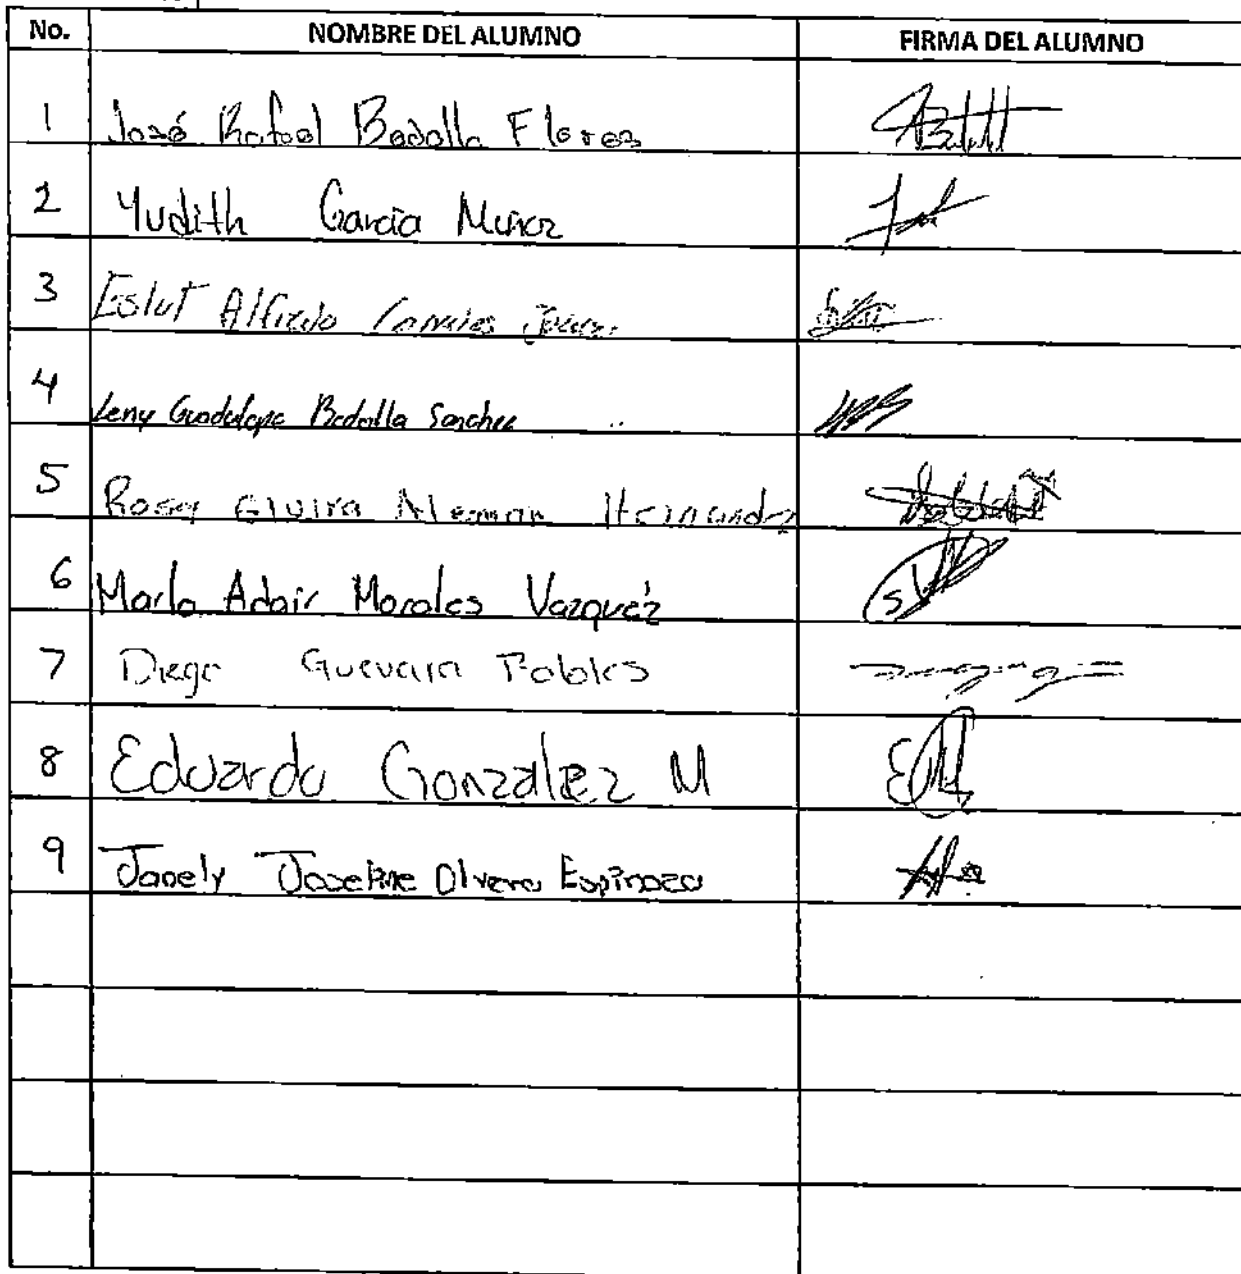 No. NOMBRE DEL ALUMNO FIRMA DEL ALUMNO
1 José Rafael Badalla Flores
2 Yudith García Muñoz
3 Eslut Alfredo
4 Leny Guadalupe Badalla Sanchez
5 Rosa Elvira Aleman Hernandz
6 Marlo Adair Morales Vazquéz
7 Diego Guevara Robles
8 Eduardo Gonzalez M
9 Janely Joseline Olvera Espinoza